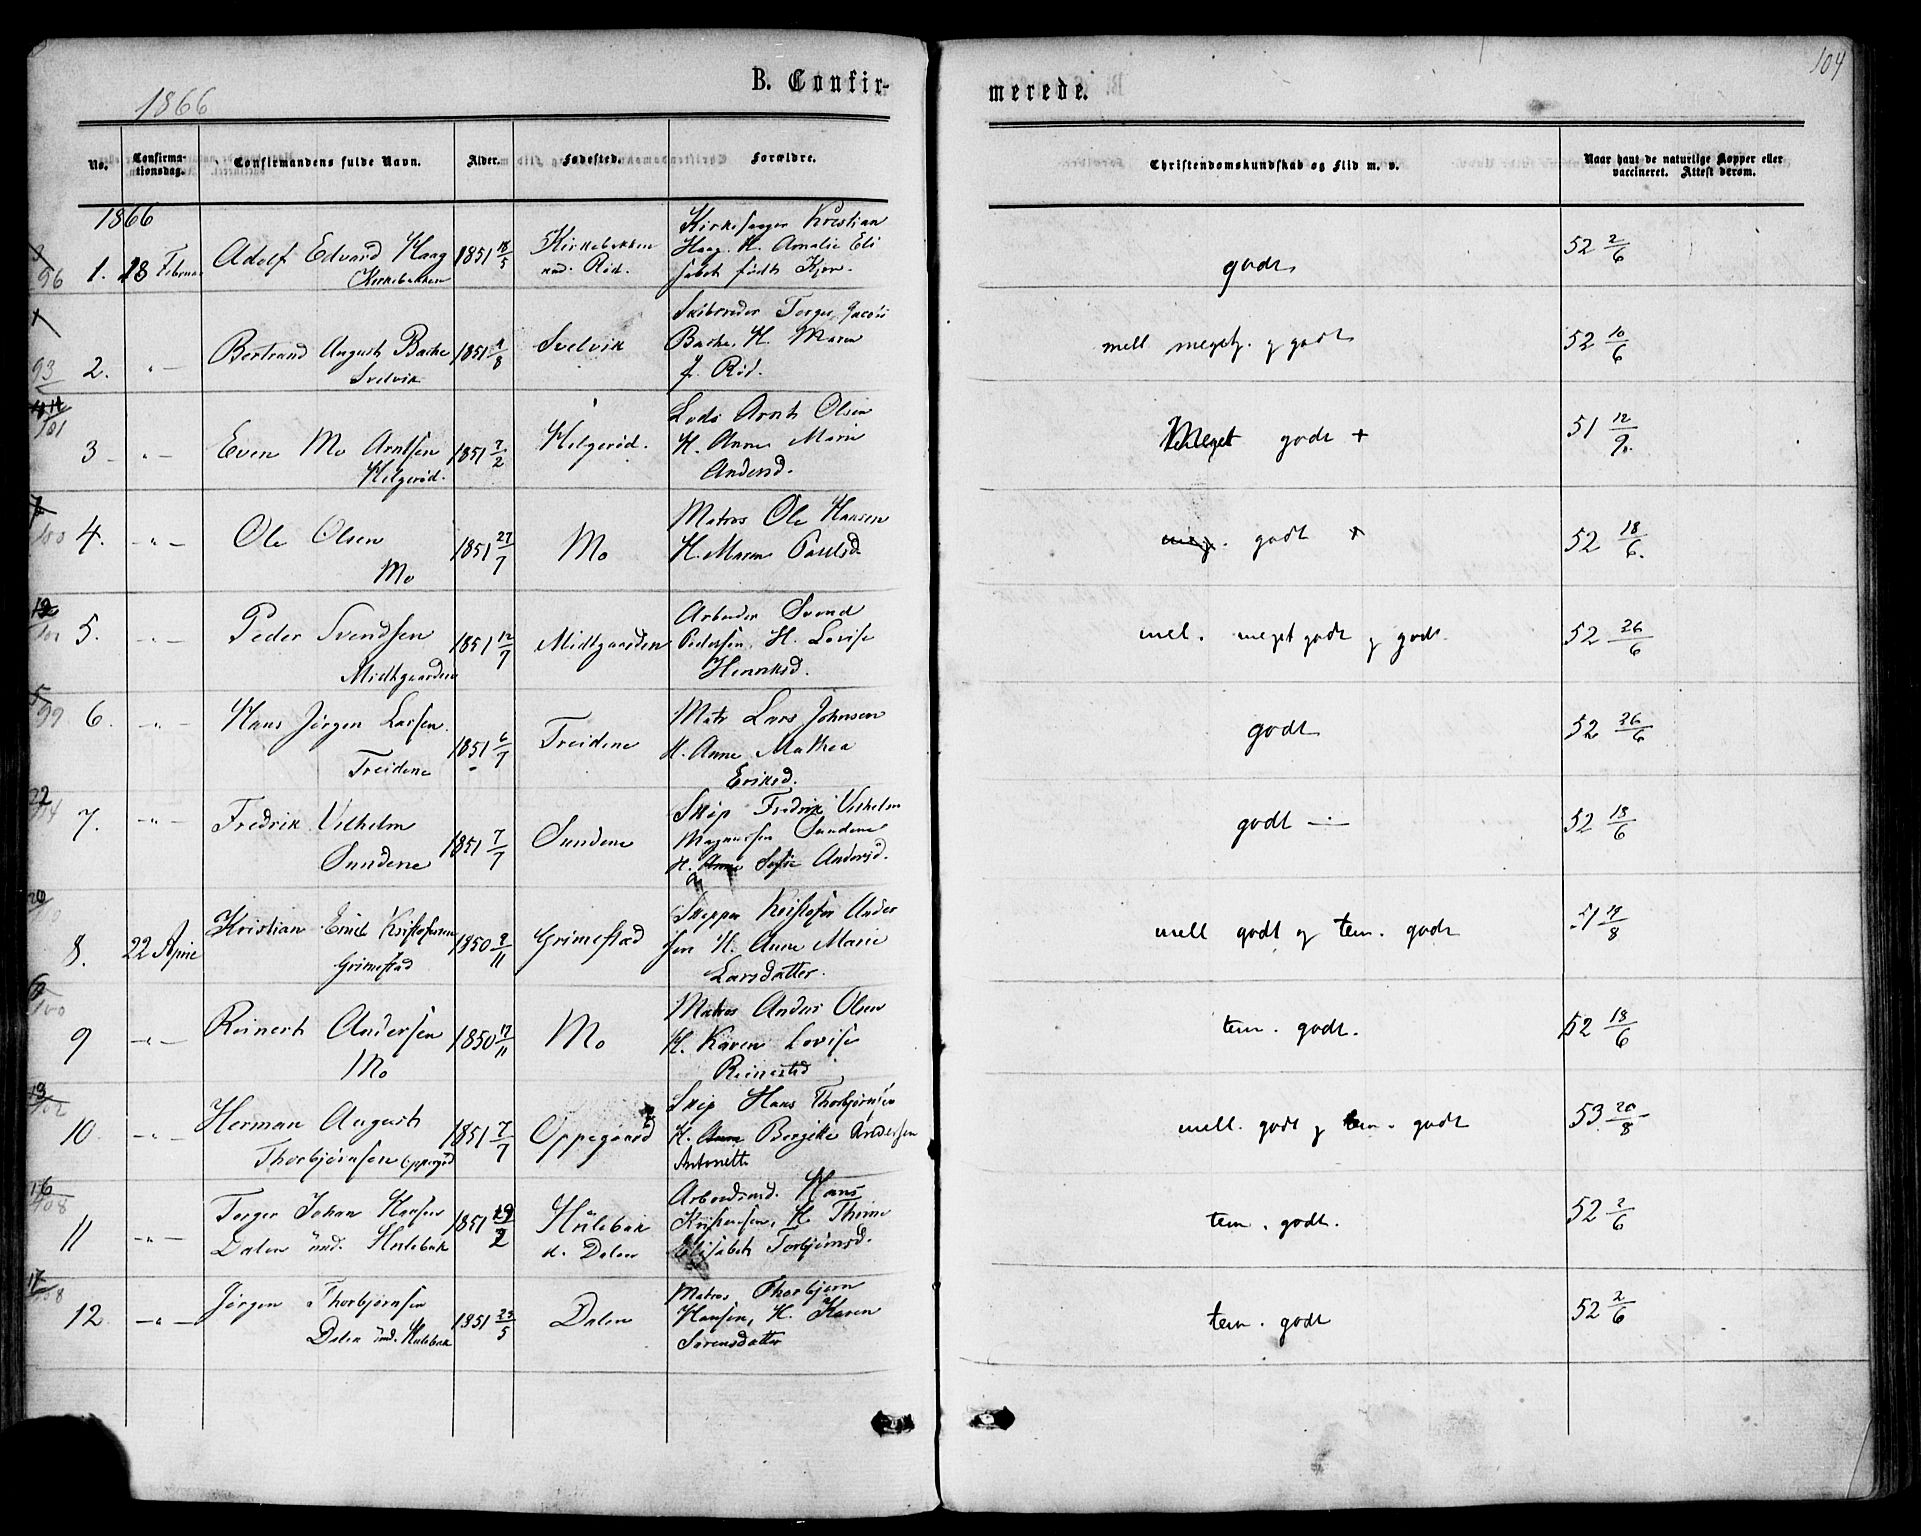 1866
B. Confir-
merede.
104
No.
Confirma-
tionsdag.
Confirmandens fulde Navn.
Alder.
Fødested.
Forældre.
Christendomskundskab og Flid m. v.
Naar havt de naturlige Kopper eller
vaccineret. Attest derom.
1866
96
1. 18 Februar
Adolf Edvard Haag
Kirkebakken
1851 18/5
Kirkebakken
und. Röd.
Kirkesanger Kristian
Haag. H. Amalie Eli
sabet födt
godt
52 2/6
93
2. -"-
Bertrand August Bache
Svelvik
1851 1/8
Svelvik
Skibsreder Torger Jacob
Bache, H. Maren
J. Röd.
mell meget. g godt
52 10/6
101
3 -"-
Even Mo Arntsen
Helgeröd.
1851 7/2
Helgeröd.
Lods Arnt Olsen
H. Anne Marie
Andersd.
Meget godt +
51 12/9.
4. -"-
Ole Olsen
Mo
1851 27/7
Mo
Matros Ole Hansen
H. Maren Paulsd.
meg. godt +
52 18/6.
5. -"-
Peder Svendsen
Midtgaarden
1851 12/7
Midtgaarden
Arbeider Svend
Pedersen, H. Lovise
Henriksd.
mel. meget godt g godt
52 26/6
99
6. -"-
Hans Jörgen Larsen
Treidene
1851 6/7
Treidene
Matr Lars Johnsen
H. Anne Mathea
Eriksd.
godt
52 26/6
22
7. -"-
Fredrik Vilhelm
Sundene
1851 7/7
Sundene
Skip Fredrik Vilhelm
Magnussen Sundene
H. Anne Sofie Andersd.
godt
52 18/6
20
8. 22 April
Kristian Emil Kristofersen
Grimestad
1850 9/11
Grimestad
Skipper Kristofer Ander
sen H. Anne Marie
Larsdatter.
mell godt og tem. godt
51 4/8
100
9 -"-
Reinert Andersen
Mo
1850 17/11
Mo
Matros Anders Olsen
H. Karen Lovise
Reinertsd
tem. godt.
52 18/6
10. -"-
Herman August
Thorbjörnsen Oppegrd
1851 7/7
Oppegaard
Skip Hans Thorbjörnsen
H. Anne Bergitte Andersen
Antonette
mell. godt g tem. godt
53. 20/8
16
11 -"-
Torger Johan Hansen
Dalen und. Hulebak
1851 19/2
Hulebak
u. Dalen
Arbeidsmd. Hans
Kristensen, H. Thrine
Elisabet Torbjörnsd.
tem. godt.
52 2/6
17
12. -"-
Jörgen Thorbjörnsen
Dalen und. Hulebak
1851 23/5
Dalen
Matros Thorbjörn
Hansen, H. Karen
Sörensdatter
tem. godt
52 2/6